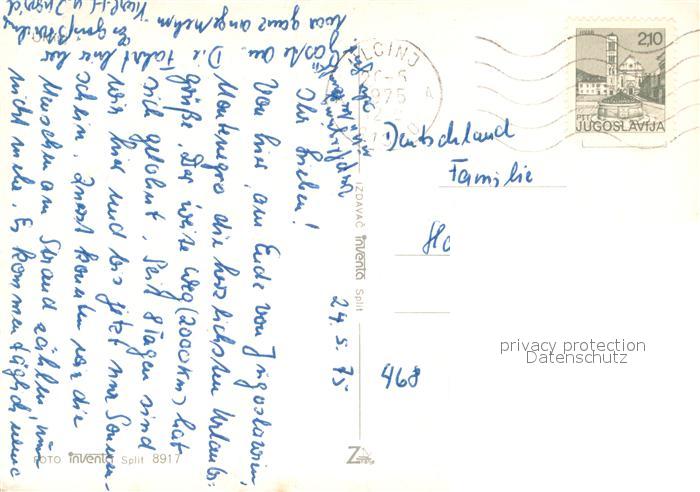 Ihr Lieben!
Von hier, am Ende von Jugoslawien,
Montenegro die herzlichsten Urlaubs-
grüße. Der weite Weg (2000 km) hat
sich gelohnt. Seit 8 Tagen sind
wir hier und bis jetzt nur Sonnen-
schein. Zuerst konnten wir die
Menschen am Strand zählen, nun
nicht mehr. Es kommen täglich neue
Gäste an. Die Fahrt hier her
war ganz angenehm.
24. 5. 75
ULCINJ
1975
HVAR
2,10
PTT
JUGOSLAVIJA
Deutschland
Familie
Ho
468
IZDAVAČ inventa Split
FOTO inventa Split 8917
privacy protection
Datenschutz